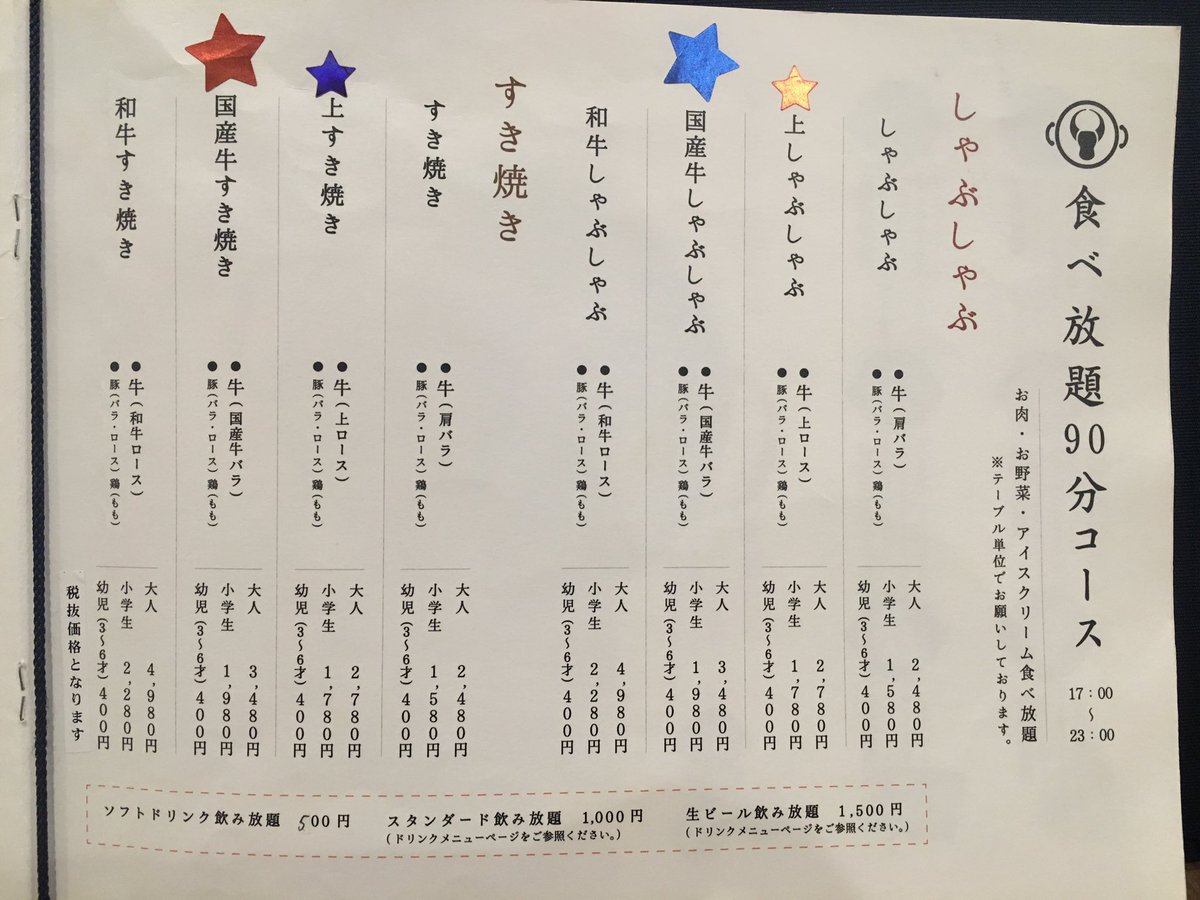 食べ放題90分コース
17:00
〜
23:00
お肉・お野菜・アイスクリーム食べ放題
※テーブル単位でお願いしております。
しゃぶしゃぶ
しゃぶしゃぶ
●牛(肩バラ)
●豚(バラ・ロース)鶏(もも)
大人 2,480円
小学生 1,580円
幼児(3〜6才)400円
上しゃぶしゃぶ
●牛(上ロース)
●豚(バラ・ロース)鶏(もも)
大人 2,780円
小学生 1,780円
幼児(3〜6才)400円
国産牛しゃぶしゃぶ
●牛(国産牛バラ)
●豚(バラ・ロース)鶏(もも)
大人 3,480円
小学生 1,980円
幼児(3〜6才)400円
和牛しゃぶしゃぶ
●牛(和牛ロース)
●豚(バラ・ロース)鶏(もも)
大人 4,980円
小学生 2,280円
幼児(3〜6才)400円
すき焼き
すき焼き
●牛(肩バラ)
●豚(バラ・ロース)鶏(もも)
大人 2,480円
小学生 1,580円
幼児(3〜6才)400円
上すき焼き
●牛(上ロース)
●豚(バラ・ロース)鶏(もも)
大人 2,780円
小学生 1,780円
幼児(3〜6才)400円
国産牛すき焼き
●牛(国産牛バラ)
●豚(バラ・ロース)鶏(もも)
大人 3,480円
小学生 1,980円
幼児(3〜6才)400円
和牛すき焼き
●牛(和牛ロース)
●豚(バラ・ロース)鶏(もも)
大人 4,980円
小学生 2,280円
幼児(3〜6才)400円
税抜価格となります
ソフトドリンク飲み放題 500円
スタンダード飲み放題 1,000円
(ドリンクメニューページをご参照ください。)
生ビール飲み放題 1,500円
(ドリンクメニューページをご参照ください。)